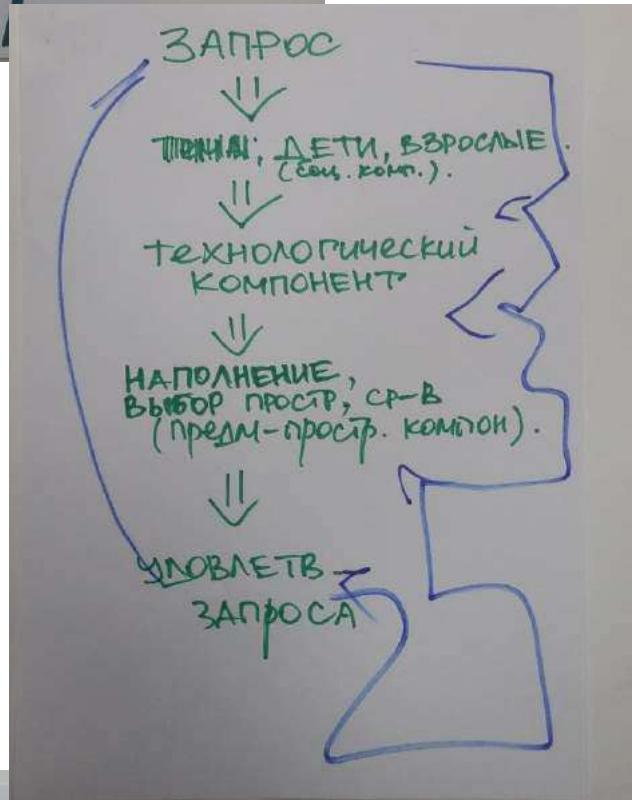 ЗАПРОС
ДЕТИ, ВЗРОСЛЫЕ.
(соц. комп.).
ТЕХНОЛОГИЧЕСКИЙ
КОМПОНЕНТ
НАПОЛНЕНИЕ,
ВЫБОР ПРОСТР, СР-В
(предм-простр. компон).
УДОВЛЕТВ
ЗАПРОСА